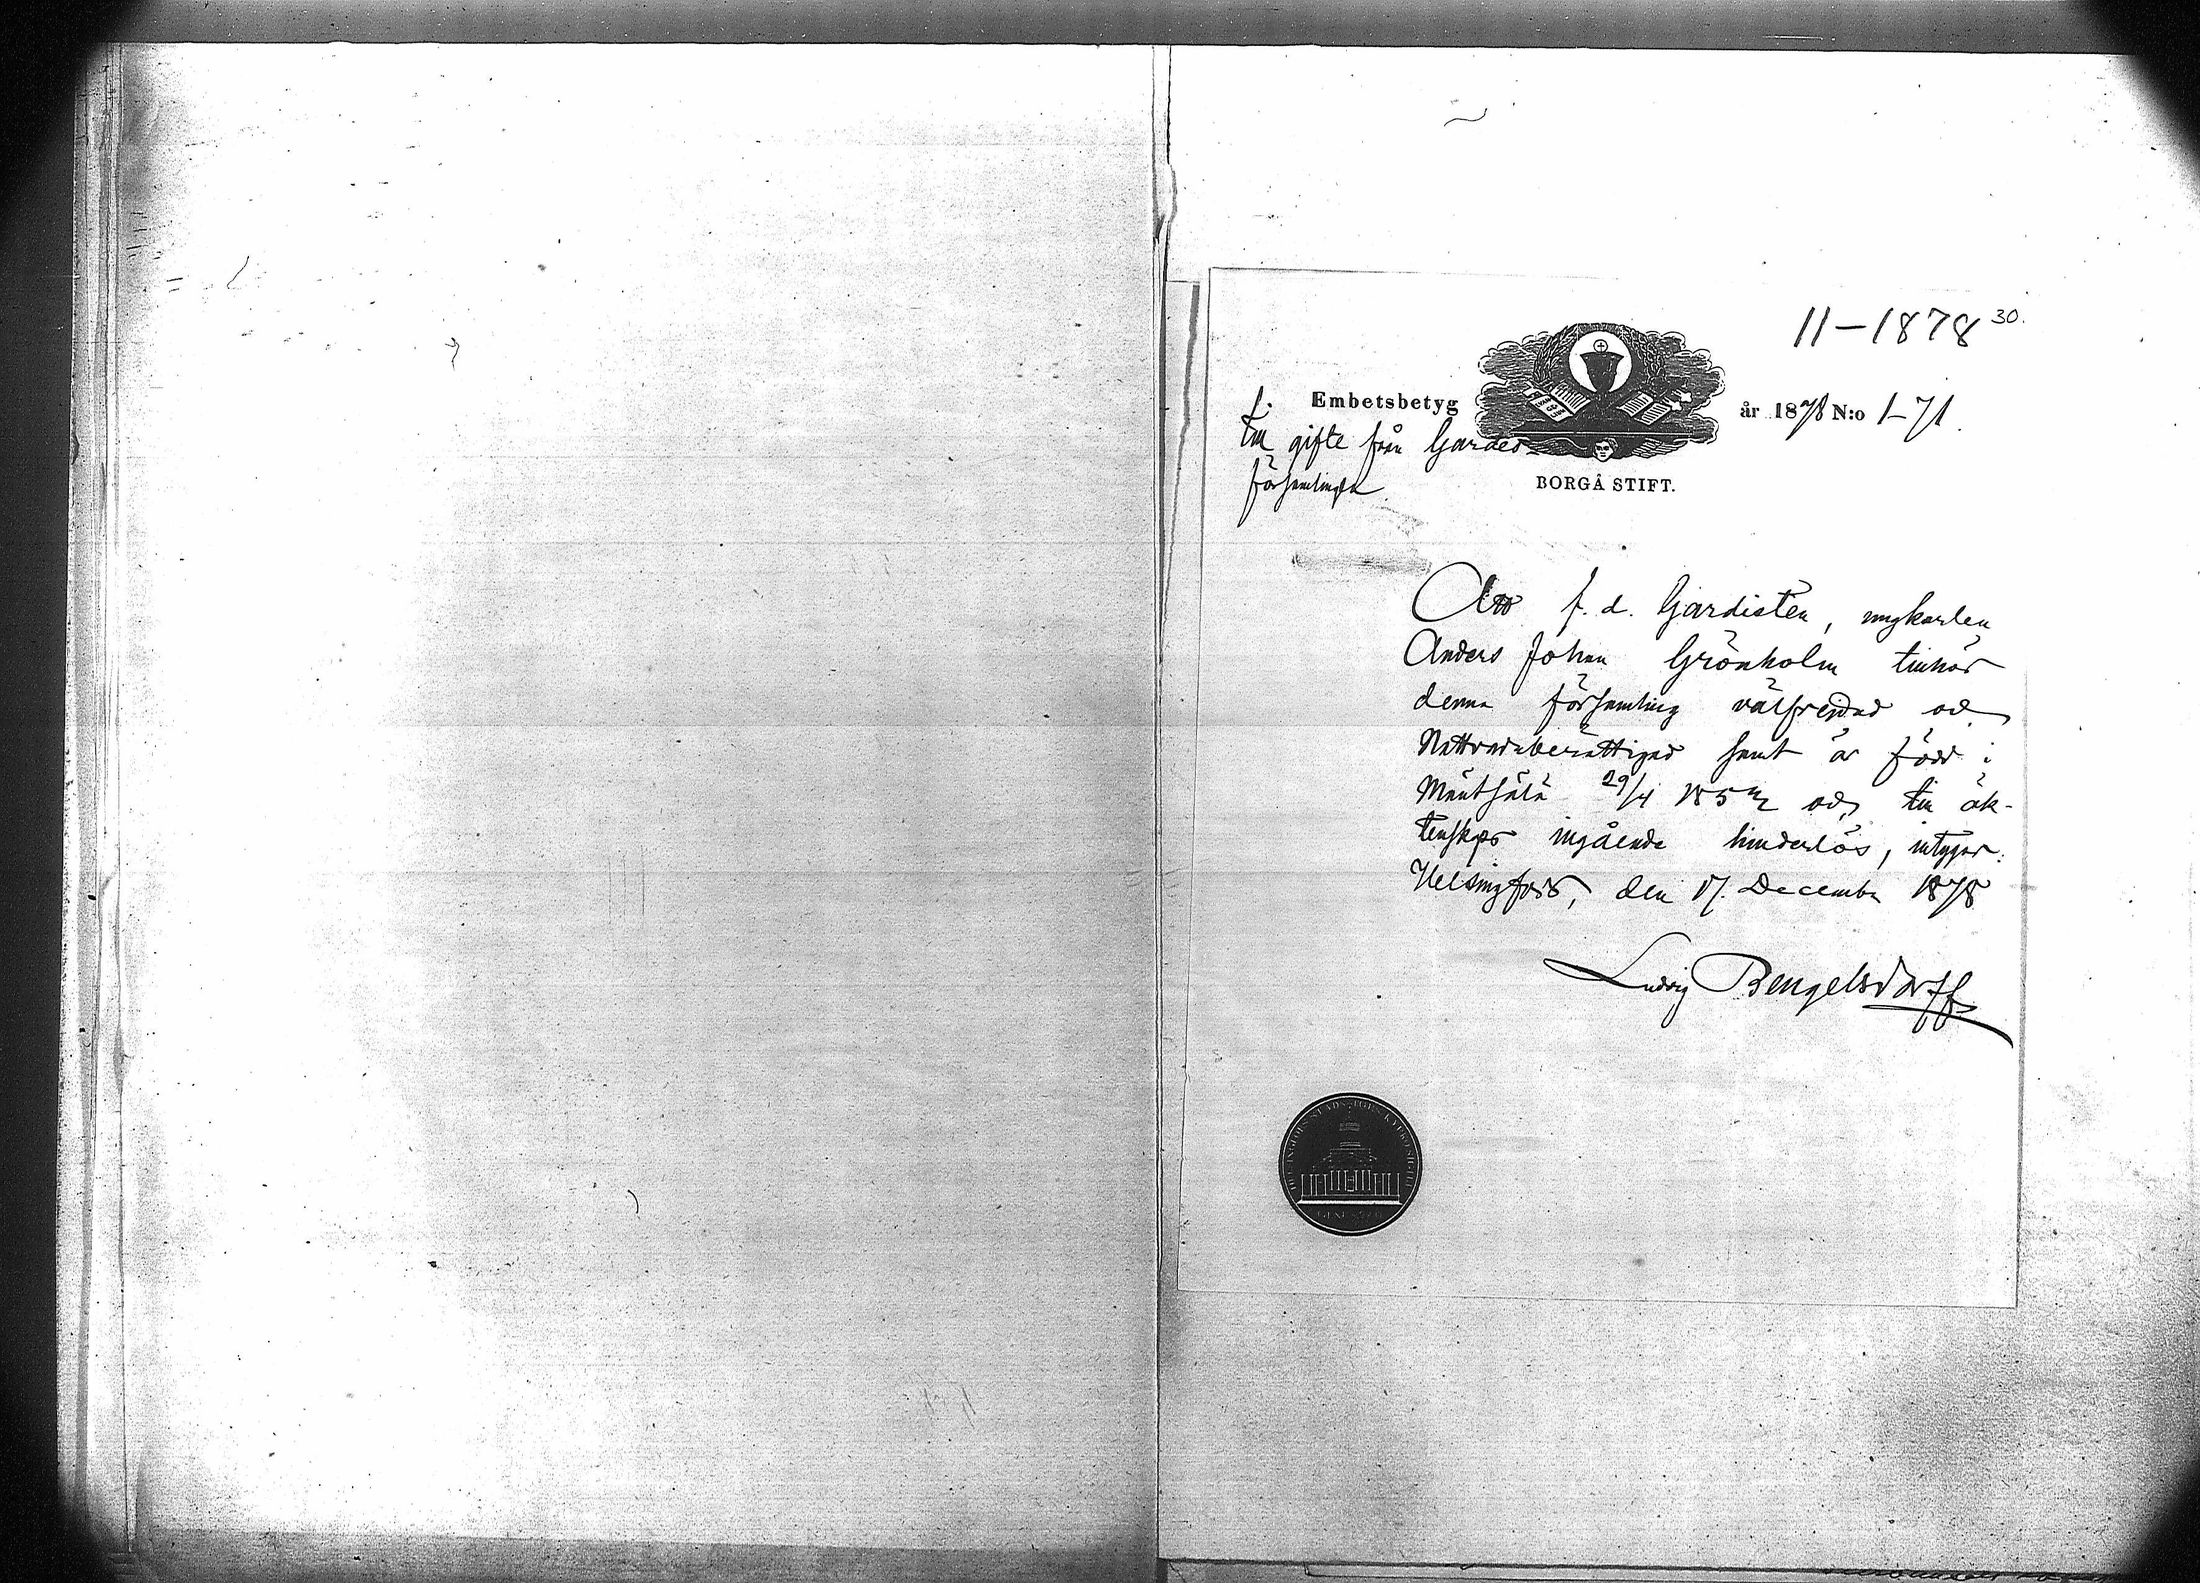 11–1878 30.
Embetsbetyg år 1878 N:o 1–71.
till gifte från Gardes-
församlingen
BORGÅ STIFT.
Att f. d. Gardisten, ungkarlen
Anders Johan Grönholm tillhör
denna församling välfrejdad och
Nattvardsberättigad samt är född i
Mäntsälä 29/4 185 och till äk-
tenskaps ingående hinderlös, intygar:
Helsingfors, den 17. December 1878
Ludvig Bengelsdorff